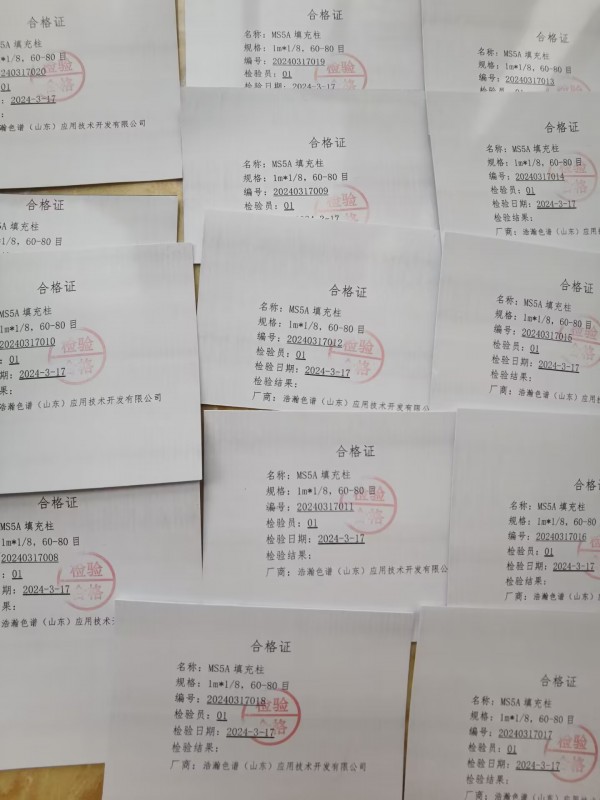 合格证
S5A 填充柱
1/8, 60-80 目
20240317020
01
2024-3-17
瀚色谱（山东）应用技术开发有限公司
检验
合格
合格证
名称：MS5A 填充柱
规格：1m*1/8, 60-80 目
编号：20240317019
检验员：01
检验日期：2024-3-17
检验
合格证
名称：MS5A 填充柱
规格：1m*1/8, 60-80 目
编号：20240317013
检验员：01
合格证
名称：MS5A 填充柱
规格：1m*1/8, 60-80 目
编号：20240317009
检验员：01
检验
合格证
名称：MS5A 填充柱
规格：1m*1/8, 60-80 目
编号：20240317014
检验员：01
检验日期：2024-3-17
检验结果：
厂商：浩瀚色谱（山东）应用技术开
合格证
S5A 填充柱
1/8, 60-80 目
合格证
MS5A 填充柱
1m*1/8, 60-80 目
20240317010
：01
期：2024-3-17
果：
浩瀚色谱（山东）应用技术开发有限公司
检验
合格
合格证
名称：MS5A 填充柱
规格：1m*1/8, 60-80 目
编号：20240317012
检验员：01
检验日期：2024-3-17
检验结果：
厂商：浩瀚色谱（山东）应用技术开发有限公
检验
合格
合格证
名称：MS5A 填充柱
规格：1m*1/8, 60-80 目
编号：20240317015
检验员：01
检验日期：2024-3-17
检验结果：
厂商：浩瀚色谱（山东）应用技术开发
合格证
MS5A 填充柱
1m*1/8, 60-80 目
20240317008
：01
期：2024-3-17
果：
浩瀚色谱（山东）应用技术开发
检验
合格
合格证
名称：MS5A 填充柱
规格：1m*1/8, 60-80 目
编号：20240317011
检验员：01
检验日期：2024-3-17
检验结果：
厂商：浩瀚色谱（山东）应用技术开发有限公
检验
合格
合格证
名称：MS5A 填充柱
规格：1m*1/8, 60-80
编号：20240317016
检验员：01
检验日期：2024-3-17
检验结果：
厂商：浩瀚色谱（山东）应用技
合格证
名称：MS5A 填充柱
规格：1m*1/8, 60-80 目
编号：20240317018
检验员：01
检验日期：2024-3-17
检验结果：
厂商：浩瀚色谱（山东）应用技术开发有限公司
检验
合格
合格证
名称：MS5A 填充柱
规格：1m*1/8, 60-80 目
编号：20240317017
检验员：01
检验日期：2024-3-17
检验结果：
厂商：浩瀚色谱（山东）应用技术开
检验
合格